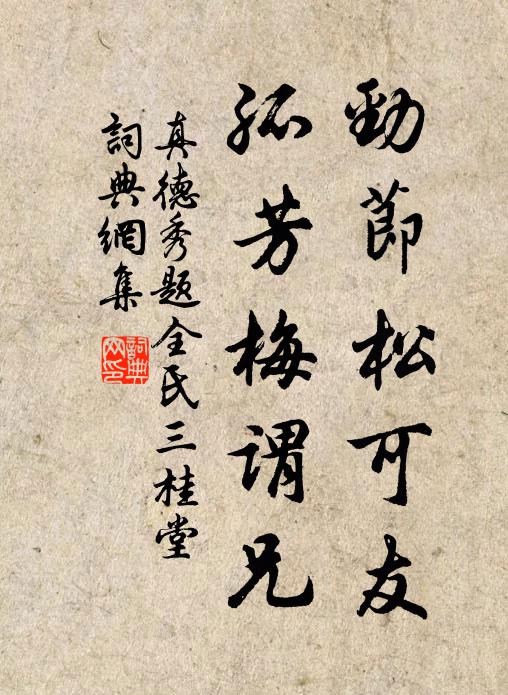 勁節松可友
孤芳梅謂兄
真德秀題全氏三桂堂
詞典網集
詞典網印